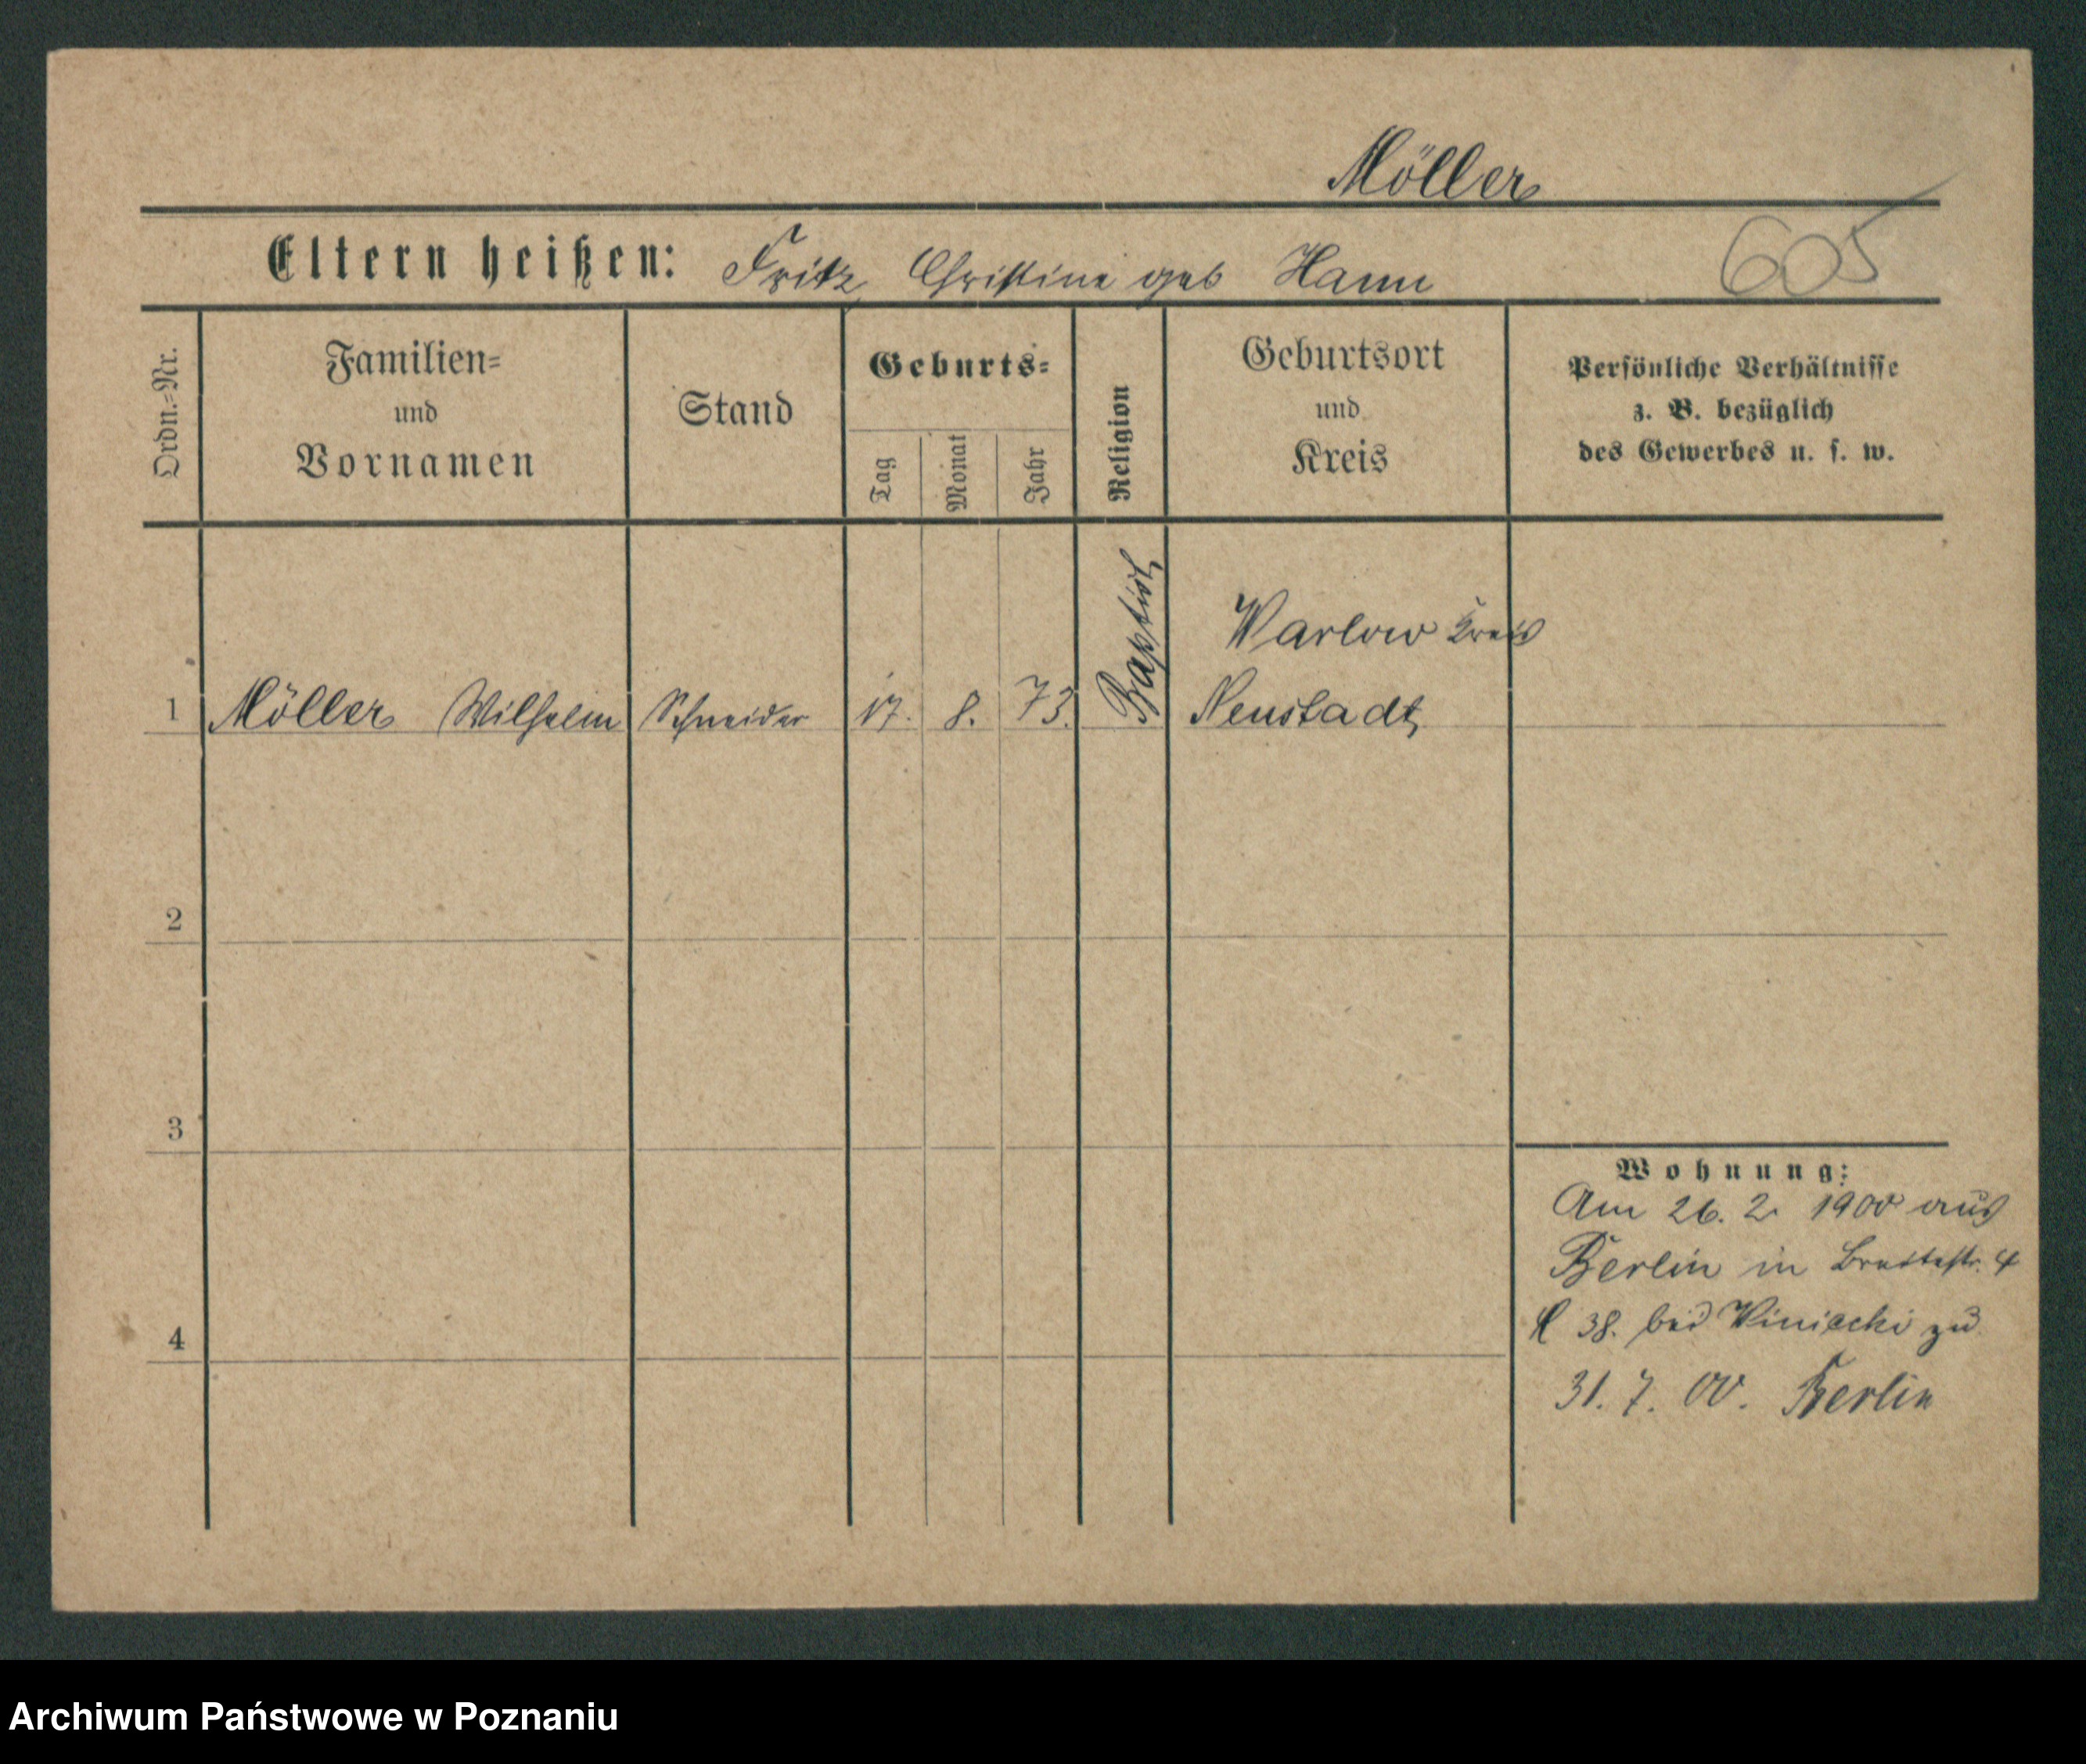 Möller
Eltern heißen: Fritz Christine geb Hann
605
Ordn.=Nr.
Familien=
und
Vornamen
Stand
Geburts=
Tag
Monat
Jahr
Religion
Geburtsort
und
Kreis
Persönliche Verhältnisse
z. B. bezüglich
des Gewerbes u. s. w.
Warlow Kreis
1 Möller Wilhelm Schneider 17. 8. 73. Baptist Neustadt
2
3
4
Wohnung:
Am 26. 2. 1900 aus
Berlin in Breitestr. 4
38. bei Winiecki zu
31. 7. 00. Berlin
Archiwum Państwowe w Poznaniu